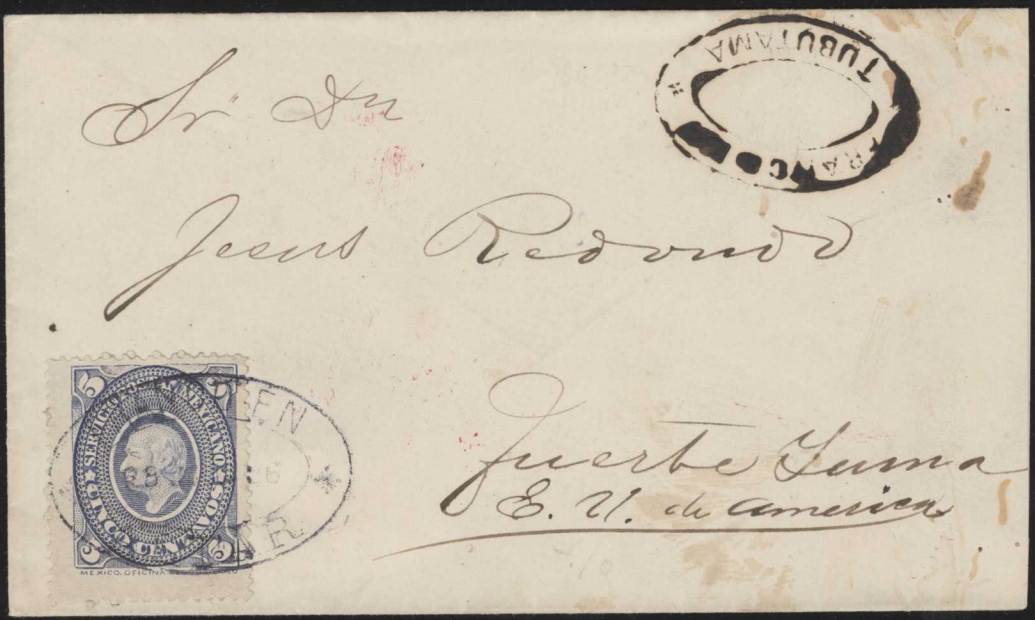 TUBUTAMA
FRANCO
Sr Dn
Jesus Redondo
Fuerte Yuma
E. U. de America
SERVICIO POSTAL MEXICANO
5 5
CINCO CENTAVOS
5 5
MEXICO. OFICINA